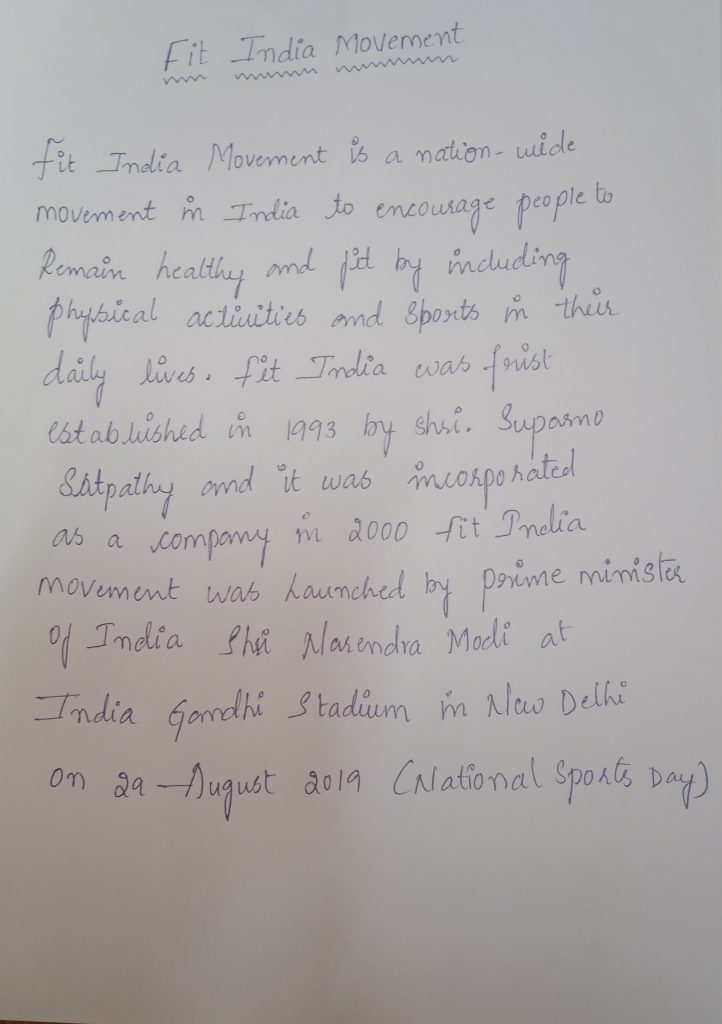 Fit India Movement
Fit India Movement is a nation-wide
movement in India to encourage people to
Remain healthy and fit by including
physical activities and Sports in their
daily lives. Fit India was frist
established in 1993 by Shri. Suparno
Satpathy and it was incorporated
as a company in 2000 fit India
movement was Launched by prime minister
Of India Shri Narendra Modi at
India Gandhi Stadium in New Delhi
on 29 August 2019 (National Sports Day)